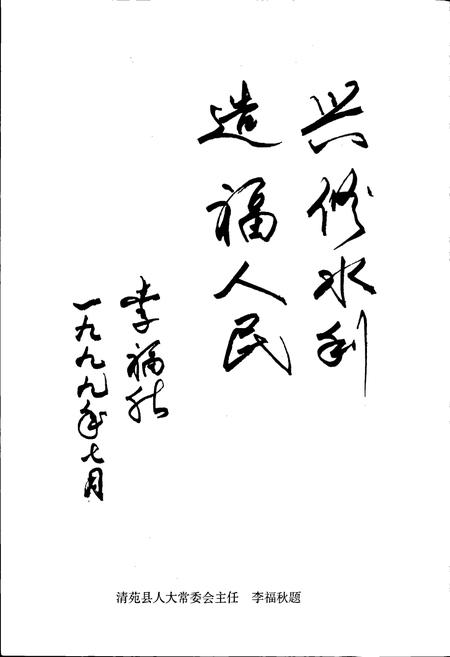 兴修水利
造福人民
李福秋
一九九九年七月
清苑县人大常委会主任　李福秋题